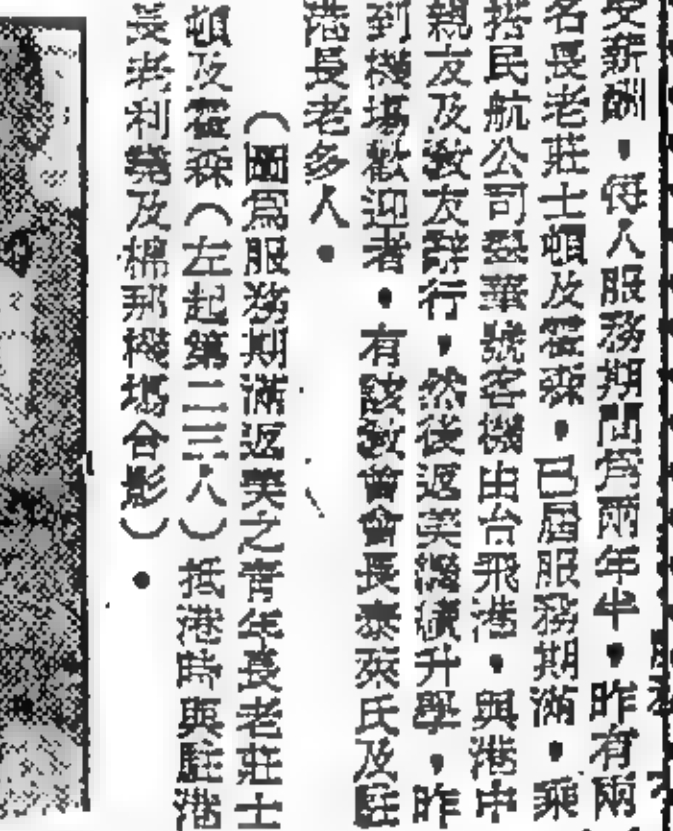 受薪酬，每人服務期間爲兩年半，昨有兩
名長老莊士頓及霍森，已屆服務期滿，乘
搭民航公司翠華號客機由台飛港，與港中
親友及教友辭行，然後返美繼續升學，昨
到機塲歡迎者，有該教會會長泰萊氏及駐
港長老多人。
（圖爲服務期滿返美之青年長老莊士
頓及霍森（左起第二三人）抵港時與駐港
長老利樂及棉那機塲合影）。